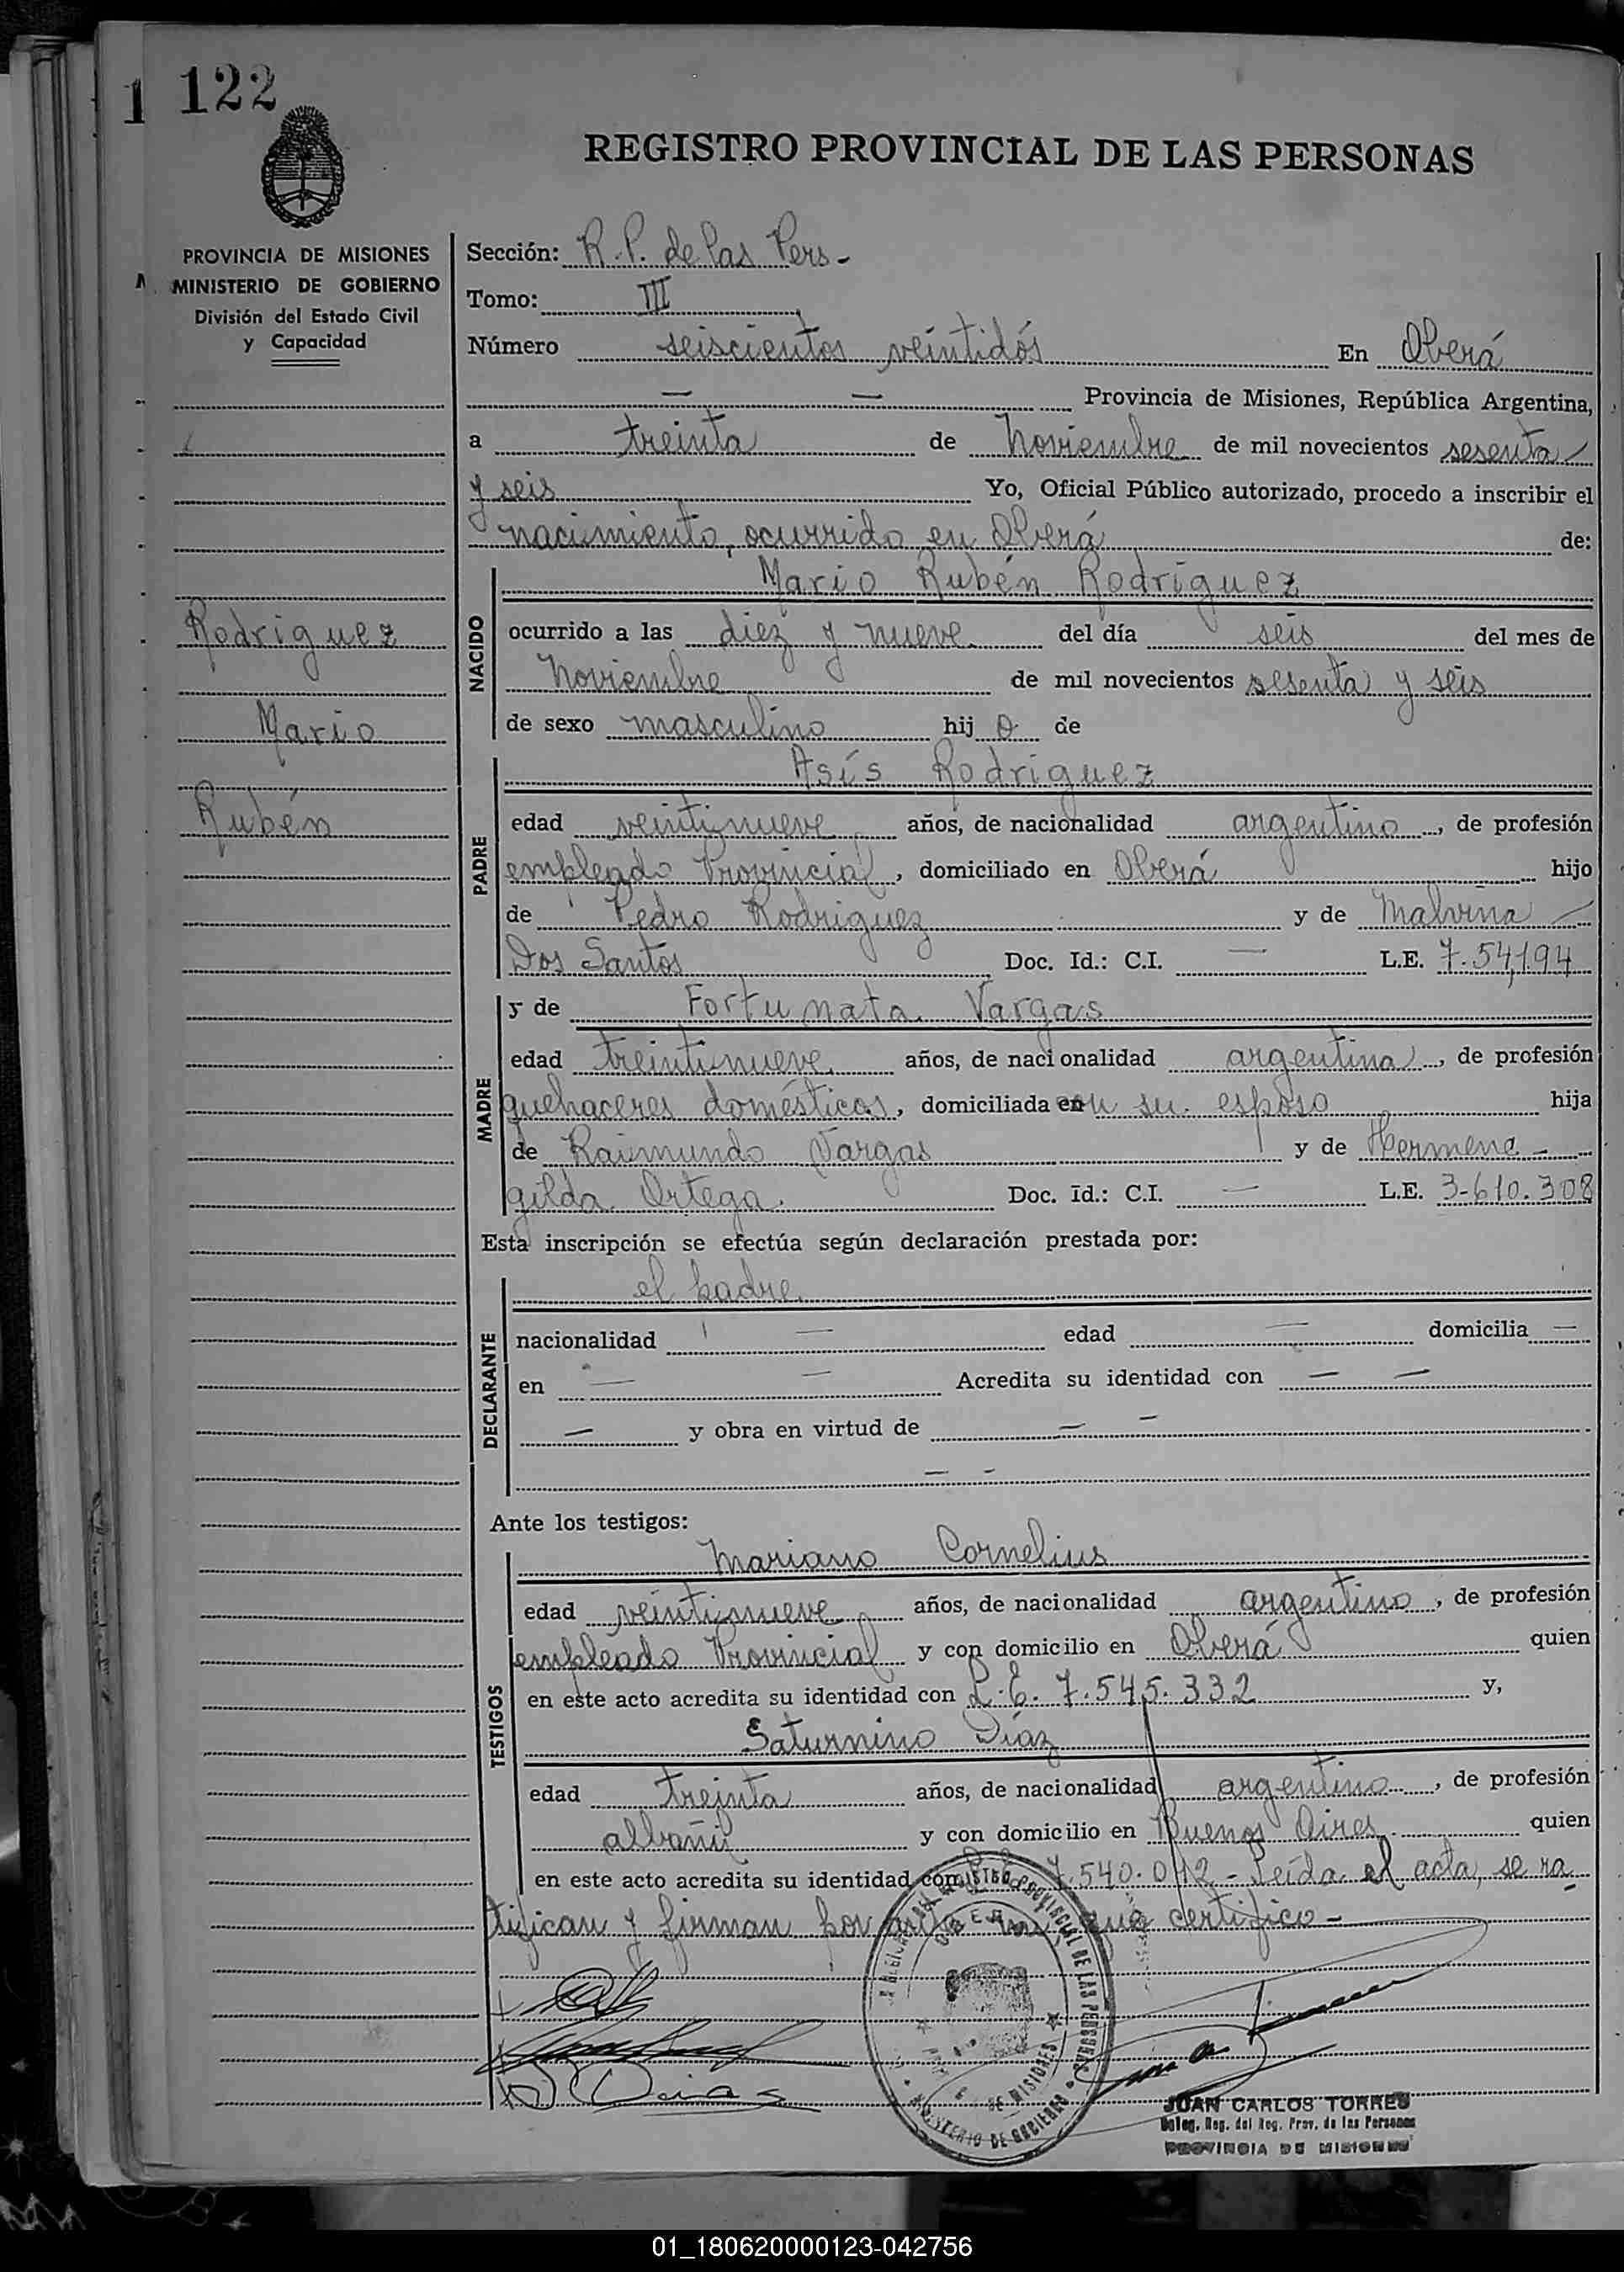 1 122
REGISTRO PROVINCIAL DE LAS PERSONAS
PROVINCIA DE MISIONES
MINISTERIO DE GOBIERNO
División del Estado Civil
y Capacidad
Rodriguez
Mario
Rubén
Sección: R.P. de las Pers-
Tomo: III
Número seiscientos veintidós En Oberá
— — Provincia de Misiones, República Argentina,
a treinta de Noviembre de mil novecientos sesenta
y seis Yo, Oficial Público autorizado, procedo a inscribir el
nacimiento, ocurrido en Oberá de:
NACIDO
Mario Rubén Rodriguez
ocurrido a las diez y nueve del día seis del mes de
Noviembre de mil novecientos sesenta y seis
de sexo masculino hij o de
PADRE
Asís Rodriguez
edad veintinueve años, de nacionalidad argentino, de profesión
empleado Provincial, domiciliado en Oberá hijo
de Pedro Rodriguez y de Malvina
Dos Santos Doc. Id.: C.I. — L.E. 7.54,194
MADRE
y de Fortunata Vargas
edad treintinueve años, de nacionalidad argentina, de profesión
quehaceres domésticos, domiciliada en su esposo hija
de Raimundo Vargas y de Hermene-
gilda Ortega. Doc. Id.: C.I. — L.E. 3-610.308
Esta inscripción se efectúa según declaración prestada por:
DECLARANTE
el padre
nacionalidad — edad — domicilia —
en — — Acredita su identidad con — —
— y obra en virtud de — —
— -
Ante los testigos:
TESTIGOS
Mariano Cornelius
edad veintinueve años, de nacionalidad argentino, de profesión
empleado Provincial y con domicilio en Oberá quien
en este acto acredita su identidad con L.E. 7.545.332 y,
Saturnino Díaz
edad treinta años, de nacionalidad argentino, de profesión
albañil y con domicilio en Buenos Aires quien
en este acto acredita su identidad con 7.540.012 - Leída el acta, se ra
tifican y firman por ante que certifico -
REGISTRO PROVINCIAL DE LAS PERSONAS
OBERA
DE MISIONES
MINISTERIO DE GOBIERNO
Dias
JUAN CARLOS TORRES
Deleg. Reg. del Reg. Prov. de las Personas
PROVINCIA DE MISIONES
01_180620000123-042756